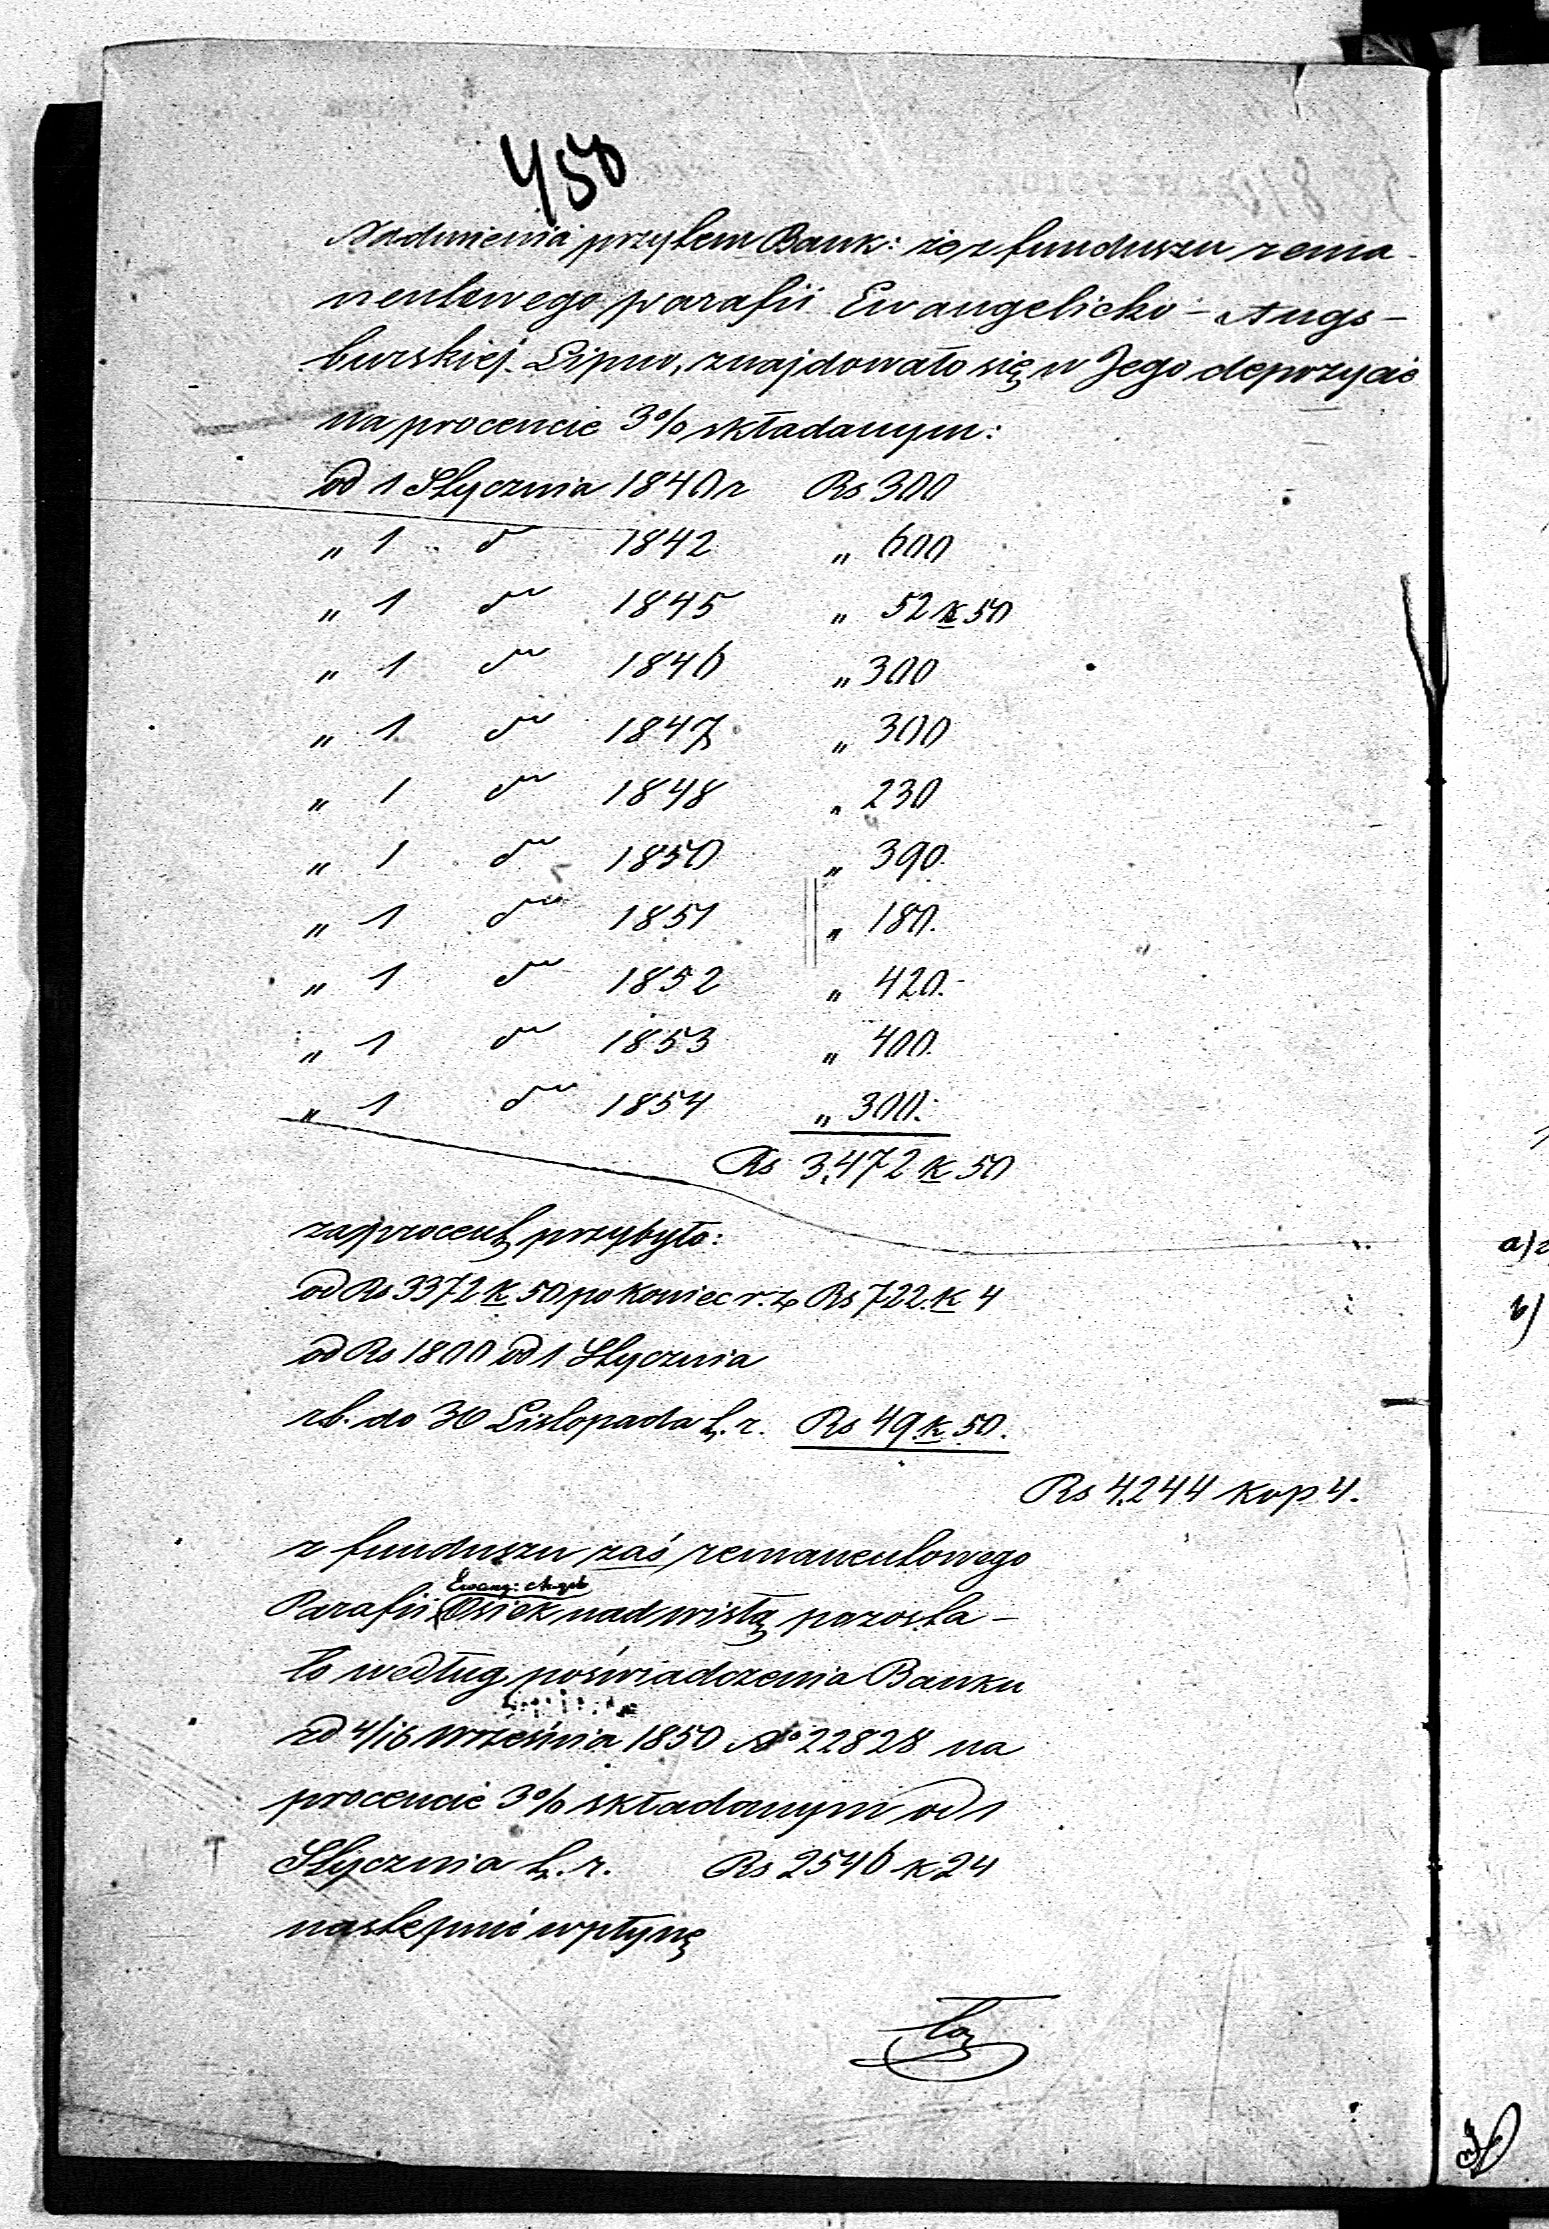 450
Nadmienia przytem Bank: że z funduszu rema-
nentowego parafii Ewangelicko-Augs-
burskiej Lipno, znajdowało się w Jego depozycie
na procencie 3% składanym:
od 1 Stycznia 1840 r Rs 300
„ 1 do 1842 „ 600
„ 1 do 1845 „ 52 k 50
„ 1 do 1846 „ 300
„ 1 do 1847 „ 300
„ 1 do 1848 „ 230
„ 1 do 1850 „ 390.
„ 1 do 1851 „ 180.
„ 1 do 1852 „ 420.-
„ 1 do 1853 „ 400.
„ 1 do 1854 „ 300.-
Rs 3,472 k 50
za procent przybyło:
od Rs 3372 k 50 po koniec r. z. Rs 722. k 4
od Rs 1800 od 1 Stycznia
rb. do 30 Listopada t. r. Rs 49 k 50.
Rs 4.244 kop 4.
z funduszu zaś remanentowego
Ewang: Augsb
Parafii Osiek nad wisłą pozosta-
ło według poświadczenia Banku
zd 4/16 Września 1850 No 22828 na
procencie 3% składanym od 1
Stycznia t. r. Rs 2546 k 24
nastepnie wpłynę
ło
a)
b)